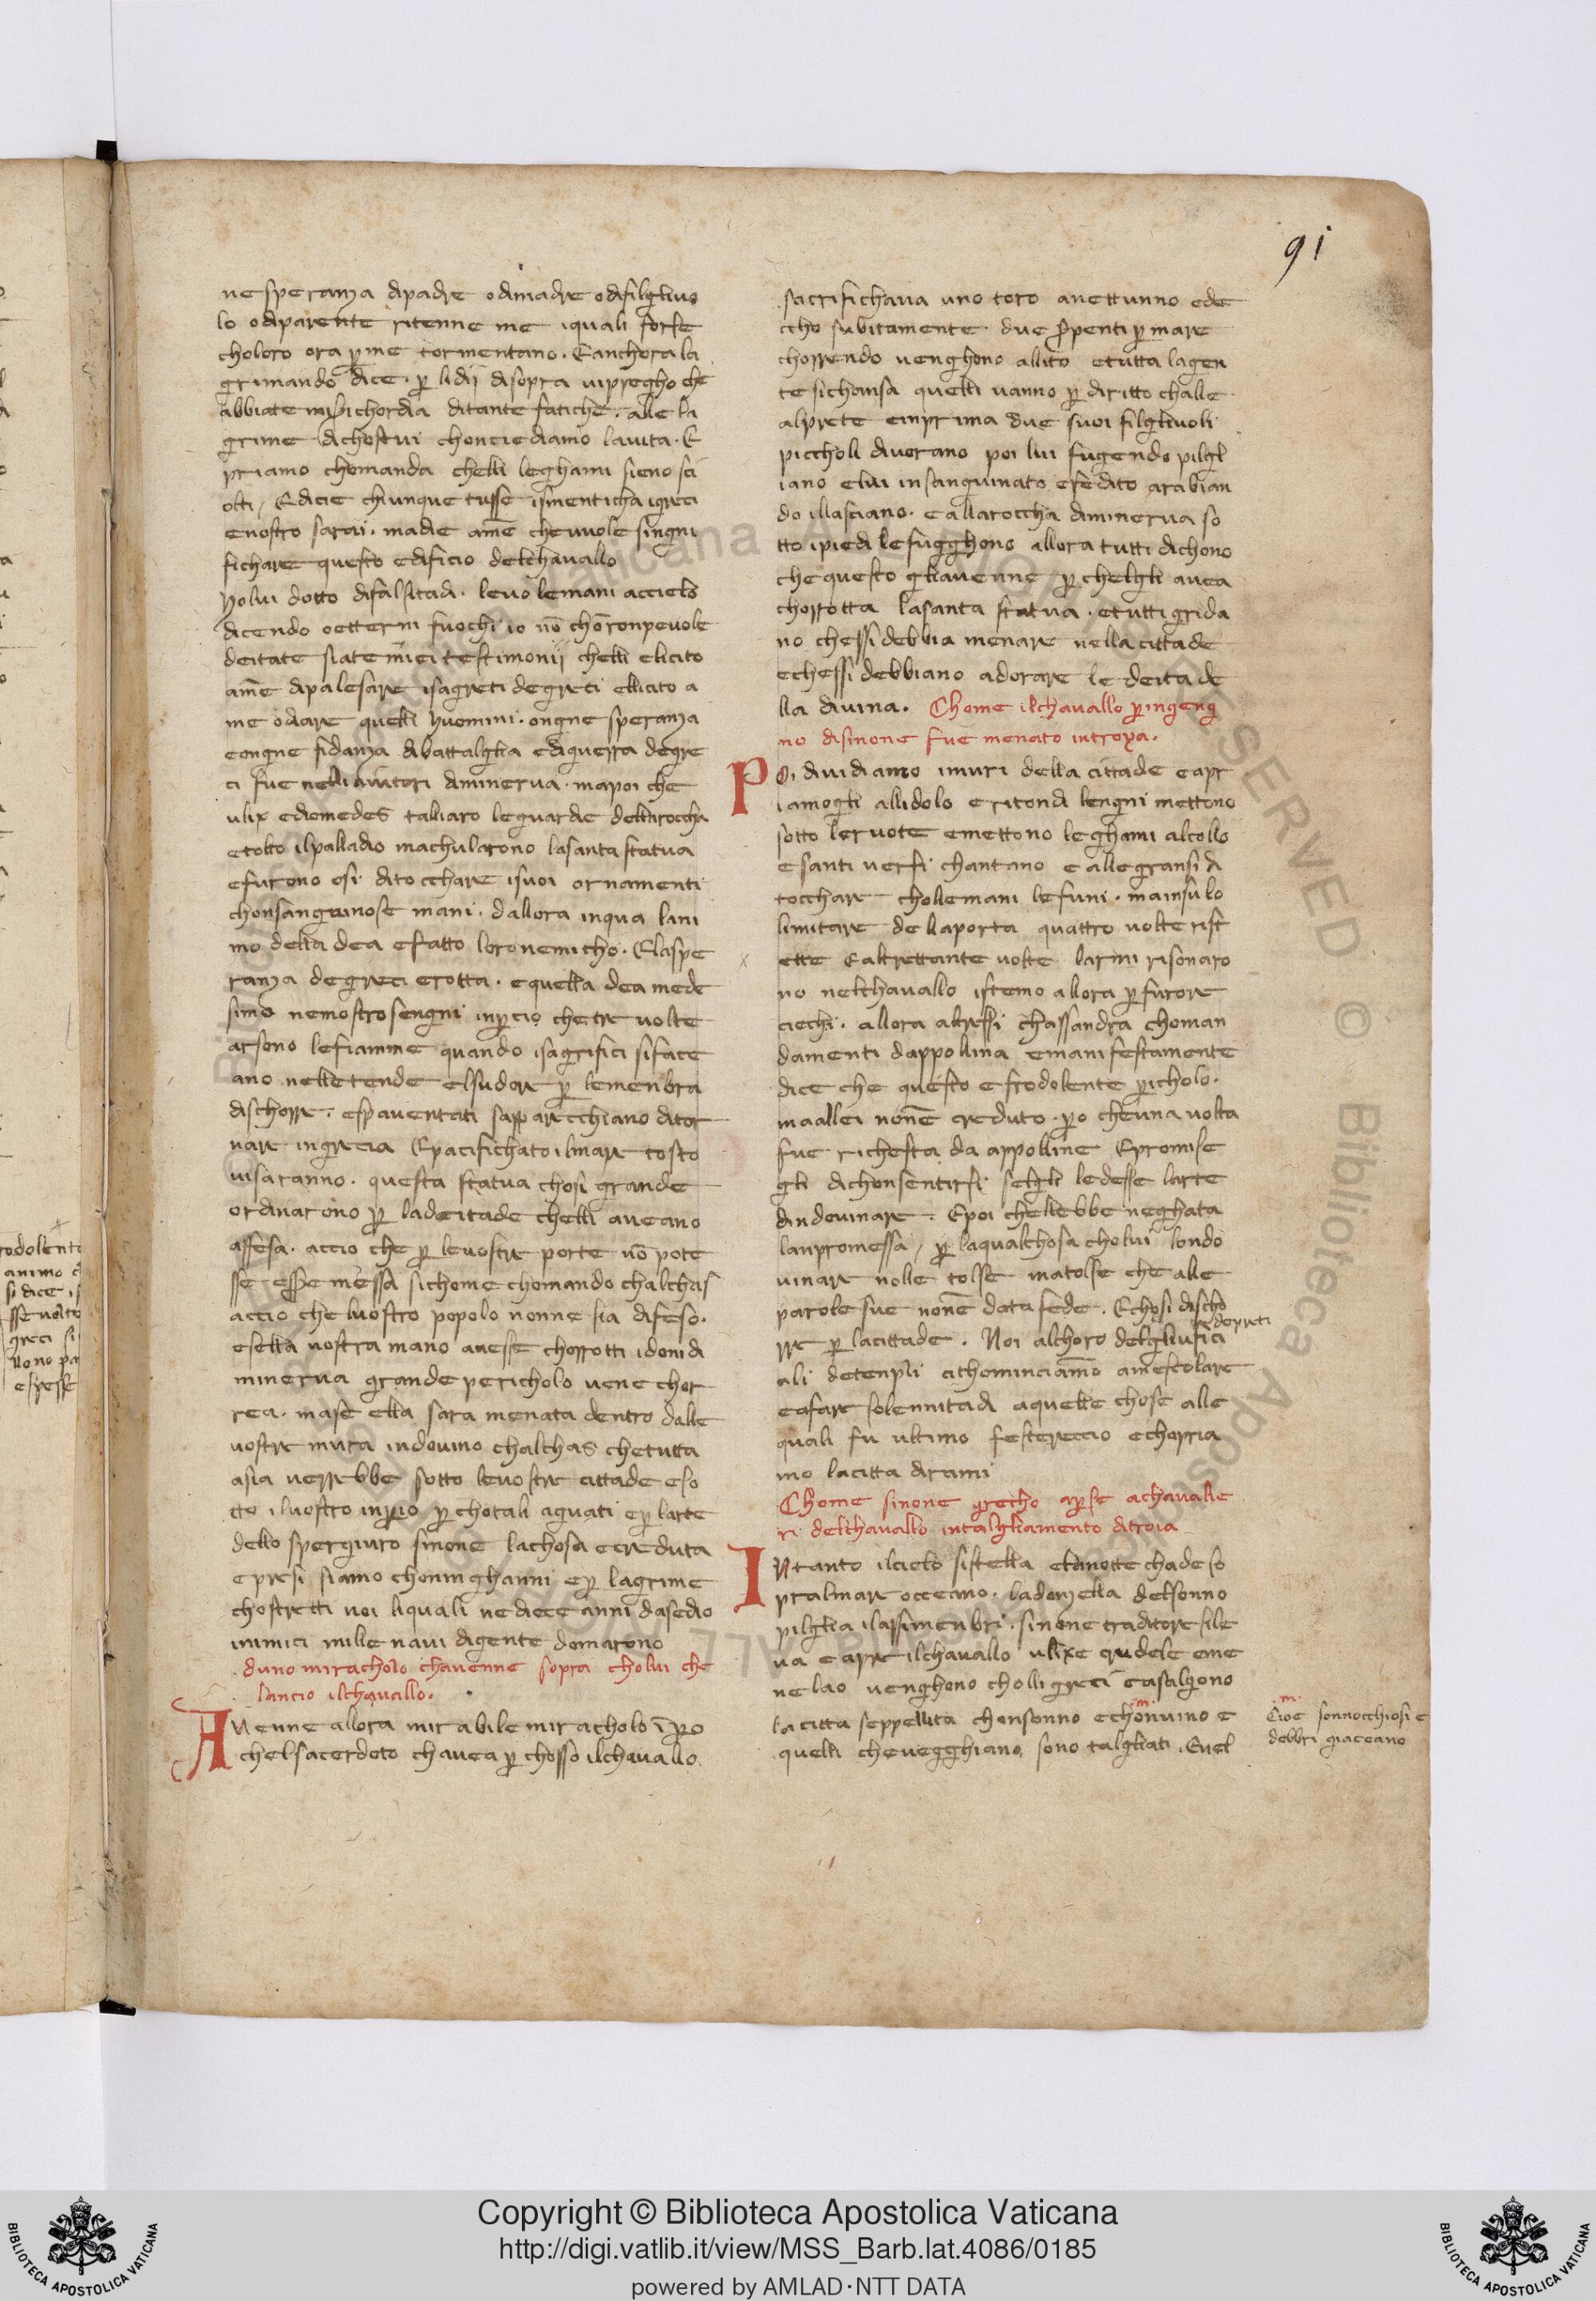 91
ne speranza di padre o di madre o di filgliuo
lo o di parente ritenne me i quali forse
choloro ora p̲ me tormentano. E anchora la
grimando dice. p̲ li dij di sopra vi pregho che
abbiate misichordia di tante fatiche. alle la
grime di chostui chonciediamo la vita. E
priamo chomanda chelli leghami sieno sci
olti, E dicie chiunque tu sse ismenticha i greci
e nostro sarai. ma die a me che vuole singni
fichare questo edificio del chavallo
Holui dotto di falsitadi. levo le mani a cielo
dicendo o etterni fuochi io nō chōronpevole
deitate siate miei testimonij chelli e licito
a me di palesare i sagreti de greci e llicito a
me odiare quelli huomini. ongne speranza
e ongne fidanza di battalglia e di guerra de gre
ci fue nelli aiutori di minerva. ma poi che
ulix e diemedes talliaro le guardie della roccha
e tolto il palladio machularono la santa statua
e furono osi di tocchare i suoi ornamenti
chon sanguinose mani. d allora in qua l ani
mo della dea e fatto loro nemicho. E la spe
ranza de greci e rotta. e quella dea mede
simo ne mostro sengni inp̲cio che tre volte
arsono le fiamme quando i sagrifici si facie
ano nelle tende e l sudore p̲ le menbra
dischorre. e spaventati s apparecchiano di tor
nare in grecia E pacifichato il mare tosto
vi saranno. questa statua chosi grande
ordinarono p̲ la deitade chelli aveano
offesa. accio che p̲ le vostre porte nō pote
sse essere messa si chome chomando chalchas
accio che l vostro popolo nonne sia difeso.
e se lla vostra mano avesse chorrotti i doni di
minerva grande pericholo vene chor
rea. ma se ella sara menata dentro dalle
vostre mura indovino chalchas che tutta
asia verrebbe sotto le vostre cittade e so
tto il vostro inp̲io p̲ chotali aguati e p̲ l arte
dello spergiuro sinone la chosa e creduta
e presi siamo chon inghanni e p̲ lagrime
chostretti noi li quali ne diece anni d asedio
inimici mille navi di gente domarono
d uno miracholo ch avenne sopra cholui che
lancio il chavallo.
Avenne allora mirabile miracholo ī p̲o
che l sacerdoto ch avea p̲chosso il chavallo
sacrifichava uno toro a nettunno ed e
ccho subitamente due s̲penti p̲ mare
chorrendo venghono al lito e tutta la gen
te si chansa quelli vanno p̲ diritto challe
al prete e in prima due suoi filgliuoli
piccholi divorano poi lui fugendo pilgl
iano e lui insanguinato e fedito arabian
do il lasciano. e alla roccha di minerva so
tto i piedi le fugghono allora tutti dichono
che questo gli avenne p̲ che lgli avea
chorrotta la santa statua. e tutti grida
no che ssi debbia menare nella cittade
e che ssi debbiano adorare le deita de
lla divina. Chome il chavallo p̲ ingeng
no di sinone fue menato in troya.
Poi dividiamo i muri della cittade e apr
iamogli all idolo e ritondi lengni mettono
sotto le ruote e mettono leghami al collo
e santi versi chantano e allegransi di
tocchare cholle mani le funi. ma in su lo
limitare della porta quattro volte rist
ette E altrettante volte l armi risonaro
no nel chavallo istemo allora p̲ furore
ciechi. allora altressi chassandra choman
damenti d appollina e manifestamente
dice che questo e frodolente p̲icholo.
ma a llei non ē creduto. p̲o che una volta
fue richesta da appolline E promise
gli di chonsentirsi s elgli le desse l arte
d indovinare. E poi che ll ebbe neghata
la npromessa, p̲ la qual chosa cholui l ondo
vinare nolle tolse ma tolse che alle
parole sue non ē data fede. E chosi discho
rre p̲ la cittade. Noi al choro delgli ufici
de preti
ali de tenpli chominciamo a mescolare
e a fare solennitadi a quelle chose alle
quali fu ultimo festereccio e chopria
mo la citta di rami
Chome sinone grecho ap̲se a chavalie
ri del chavallo in talgliamento di troia
Intanto il cielo si stella e la notte chade so
pra l mare occeano. la donzella del sonno
pilglia i lassi menbri. sinone traditore si le
va e apre il chavallo ulixe crudele e me
nelao venghono cholli greci e asalgono
la citta seppellita chon sonno e chon vino e
quelli che vegghiano sono talgliati. E nel
Cioe sonnocchiosi e
debbri giaceano